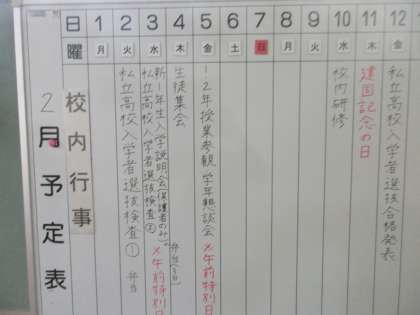 2月予定表
日 1 2 3 4 5 6 7 8 9 10 11 12
曜 月 火 水 木 金 土 日 月 火 水 木 金
校内行事
私立高校入学者選抜検査① 弁当
新一年生入学説明会(保護者のみ)。
私立高校入学者選抜検査② ×午前特別日
生徒集会
弁当(3年)
1・2年授業参観 学年懇談会 ×午前特別日
校内研修
建国記念の日
私立高校入学者選抜合格発表